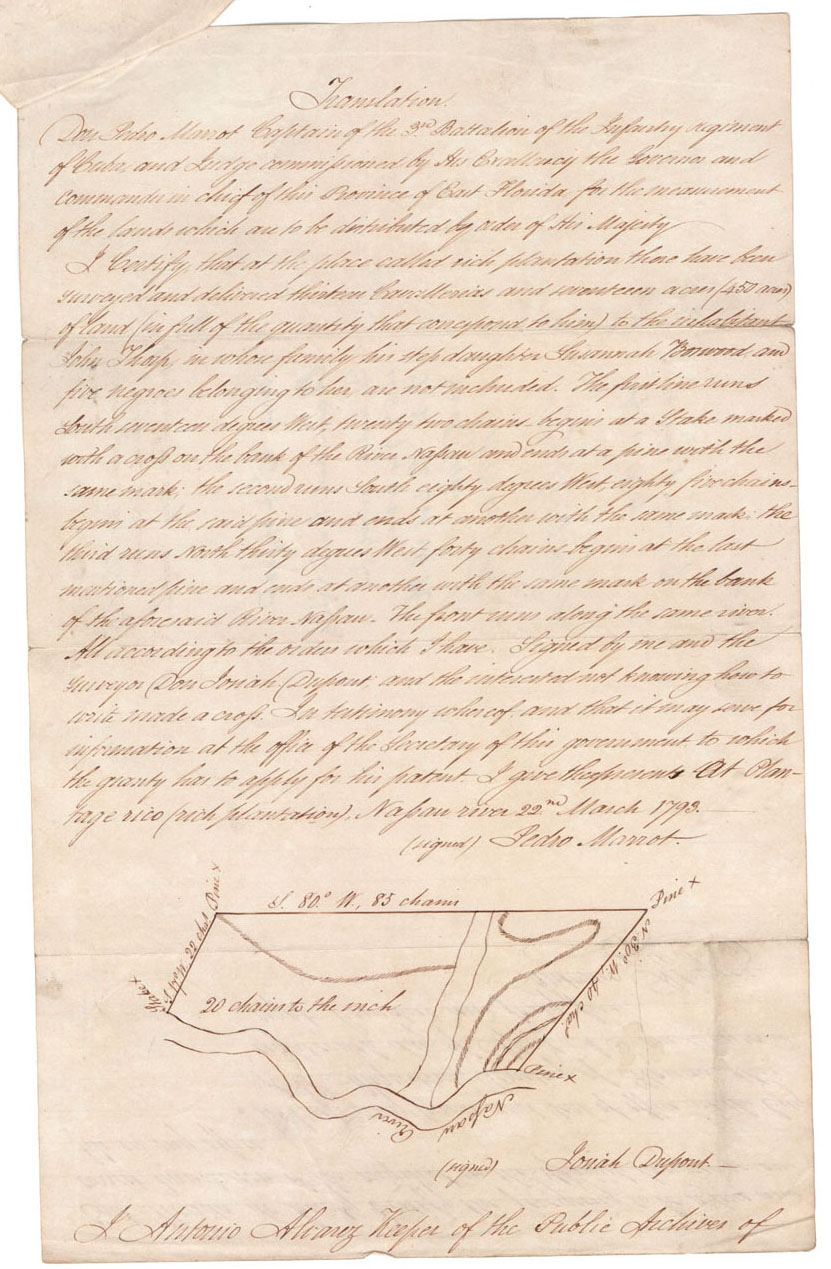 Translation.
Don Pedro Marrot Captain of the 3rd Battalion of the Infantry regiment
of Cuba, and Judge commissioned by His Excellency the Governor and
Commander in chief of this Province of East Florida for the measurement
of the lands which are to be distributed by order of His Majesty
I Certify, that at the place called rich plantation there have been
surveyed and delivered thirteen Cavallerias and seventeen acres (450 acres)
of land (in full of the quantity that correspond to him) to the inhabitant
John Tharp, in whose family his step daughter Susannah and
five negroes belonging to her, are not included. The first line runs
South seventeen degrees West, twenty two chains begins at a Stake marked
with a cross on the bank of the River Nassau and ends at a pine with the
same mark; the second runs South eighty degrees West, eighty five chains
begins at the said pine and ends at another with the same mark: the
third runs North thirty degrees West, forty chains begins at the last
mentioned pine and ends at another with the same mark on the bank
of the aforesaid River Nassau. The front runs along the same river.
All according to the orders which I have. Signed by me and the
surveyor Don Josiah Dupont, and the interested not knowing how to
write made a cross. In testimony whereof, and that it may serve for
information at the office of the Secretary of this government to which
the granty has to apply for his patent. I give these presents At Plan-
tage rico (rich plantation), Nassau river 22nd March 1793.
(signed) Pedro Marrot.
S. 80° W., 85 chains
Pine x
Pine x
S 17° W. 22 chs
Stake x
N 30° W. 40 chs.
20 chains to the inch
Pine x
River Nassau
(signed) Josiah Dupont
I Antonio Alvarez Keeper of the Public Archives of